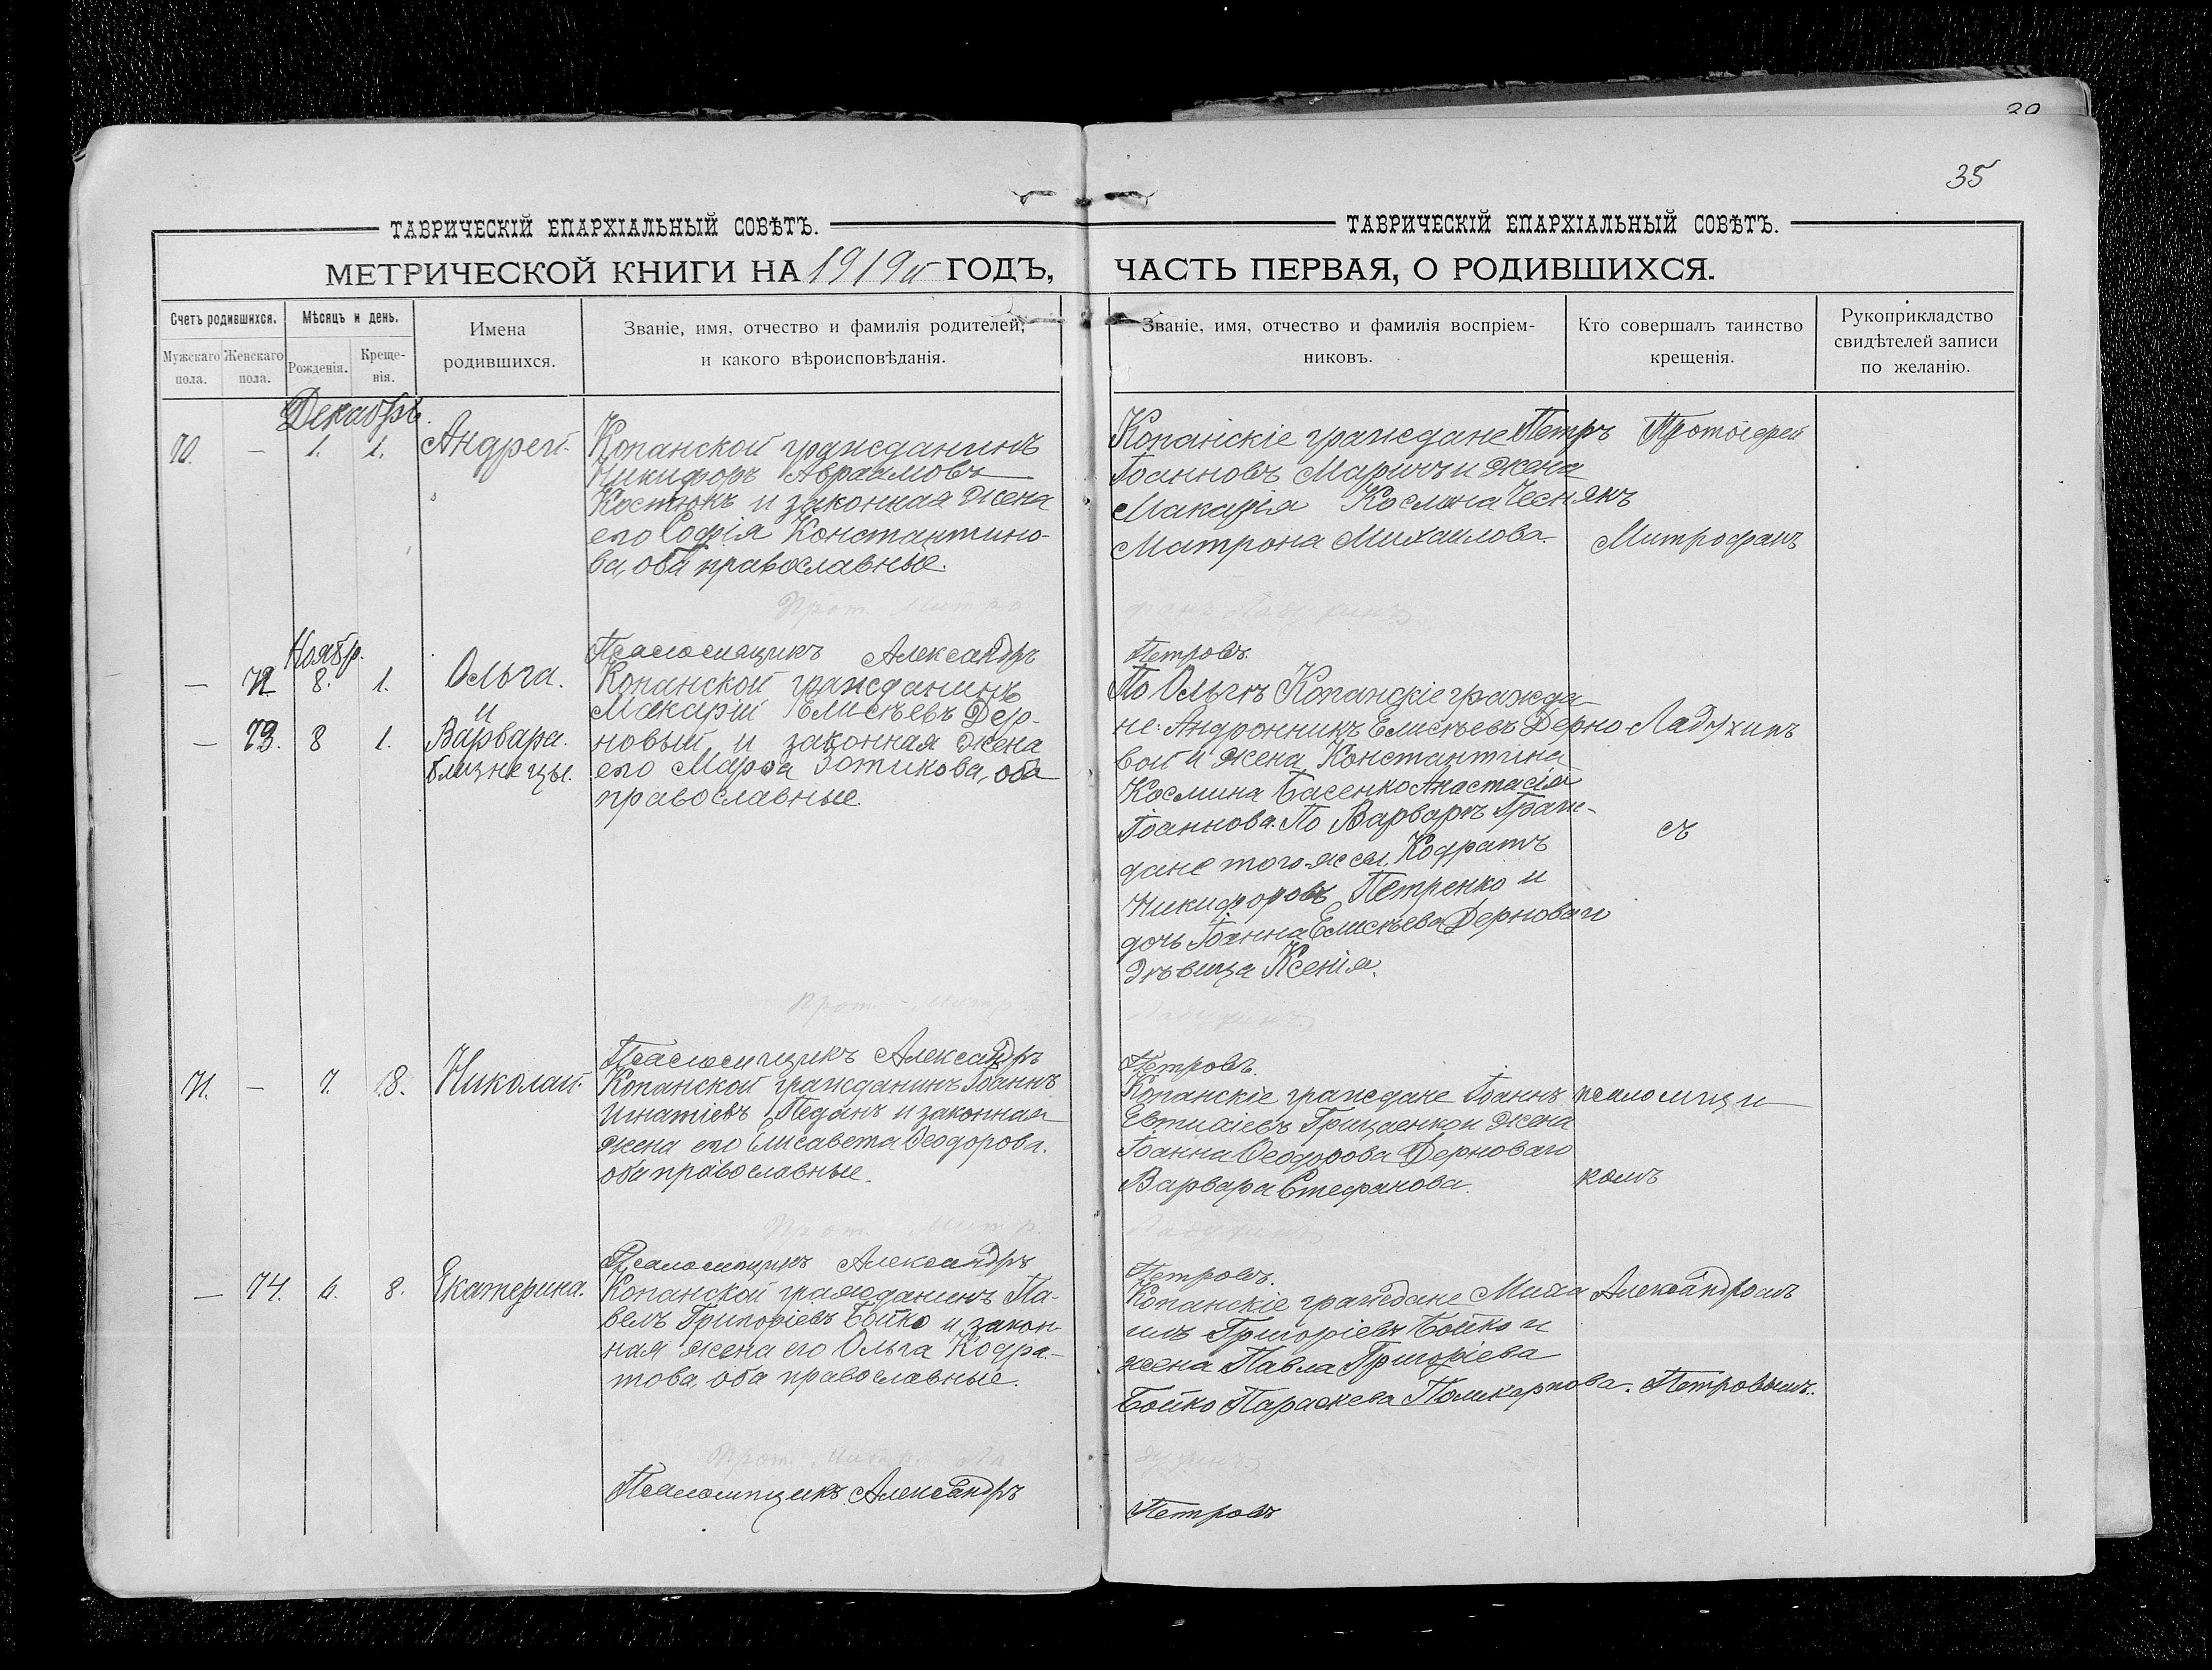 35
ТАВРИЧЕСКІЙ ЕПАРХІАЛЬНЫЙ СОВѢТЪ.
МЕТРИЧЕСКОЙ КНИГИ НА 1919й ГОДЪ,
Счетъ родившихся.
Мужскаго пола.
Женскаго пола.
Мѣсяцъ и день.
Рожденія.
Креще-
нія.
Имена
родившихся.
Званіе, имя, отчество и фамилія родителей,
и какого вѣроисповѣданія.
Декабрь.
70. — 1. 1. Андрей.
Копанской гражданинъ
Никифоръ Авраамовъ
Костюкъ и законная жена
его Софія Константино-
ва, оба православные.
Прот. Митро
Псаломщикъ Александръ
Ноябр.
— 72 8. 1. Ольга.
и
— 73. 8 1. Варвара.
близнецы.
Копанской гражданинъ
Макарій Елисѣевъ Дер-
новый и законная жена
его Марѳа Зотикова, оба
православные.
Прот. Митр
Псаломщикъ Александръ
71. — 7. 8. Николай.
Копанской гражданинъ Іоаннъ
Игнатіевъ Педанъ и законная
жена его Елисавета Ѳеодорова.
оба православные.
Прот. Митр.
Псаломщикъ Александръ
— 74. 6. 8. Екатерина.
Копанской гражданинъ Па-
велъ Григоріевъ Бойко и закон-
ная жена его Ольга Кодра-
това, оба православные.
Прот. Митр. Ла
Псаломщикъ Александръ
ТАВРИЧЕСКІЙ ЕПАРХІАЛЬНЫЙ СОВѢТЪ.
ЧАСТЬ ПЕРВАЯ, О РОДИВШИХСЯ.
Званіе, имя, отчество и фамилія воспріем-
никовъ.
Кто совершалъ таинство
крещенія.
Рукоприкладство
свидѣтелей записи
по желанію.
Копанскіе граждане Петръ
Іоанновъ Маричъ и жена
Макарія Космина Чеснякъ
Матрона Михаилова.
Протоіерей
Митрофанъ
фанъ Ладухинъ
Петровъ.
По Ольгѣ Копанскіе гражда-
не: Андронникъ Елисѣевъ Дерно-
вой и жена Константина
Космина Басенко Анастасія
Іоаннова. По Варварѣ Граж-
дане того-же сел. Кодратъ
Никифоровъ Петренко и
дочь Іоанна Елисѣева Дерноваго
дѣвица Ксенія.
Ладухинъ
съ
Ладухинъ
Петровъ.
Копанскіе граждане Іоаннъ
Евтихіевъ Грищенко и жена
Іоанна Ѳеодорова Дерноваго
Варвара Стефанова.
псаломщи
комъ
Ладухинъ
Петровъ.
Копанскіе граждане Миха
илъ Григоріевъ Бойко и
жена Павла Григоріева
Бойко Параскева Поликарпова.
Александромъ
Петровымъ.
духинъ
Петровъ